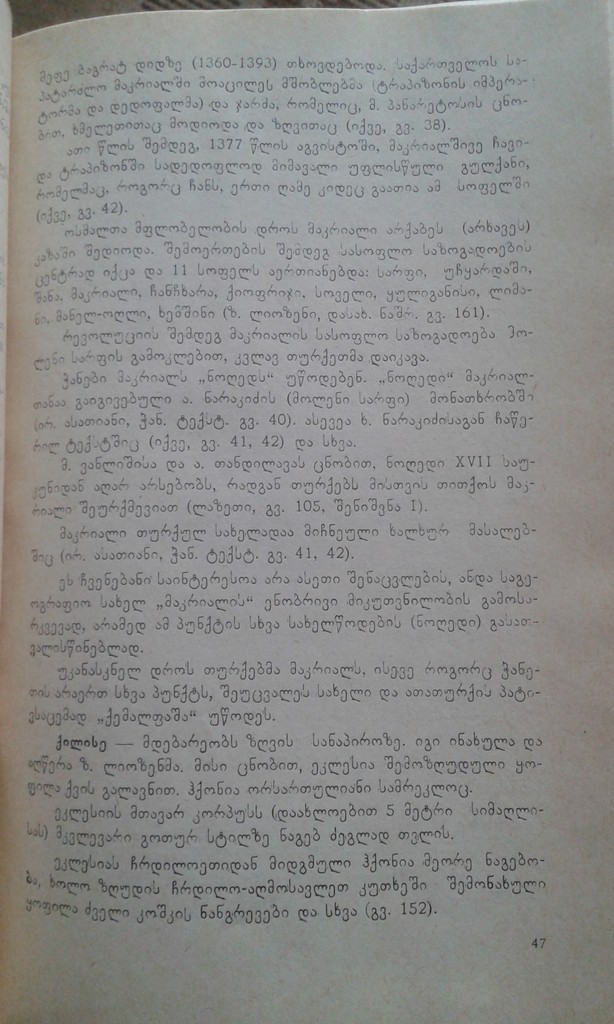 მეფე ბაგრატ დიდზე (1360-1393) თხოვდებოდა. საქართველოს სა-
პატარძლო მაკრიალში მოაცილეს მშობლებმა (ტრაპიზონის იმპერა-
ტორმა და დედოფალმა) და ჯარმა, რომელიც, მ. პანარეტოსის ცნო-
ბით, ხმელეთითაც მოდიოდა და ზღვითაც (იქვე, გვ. 38).
ათი წლის შემდეგ, 1377 წლის აგვისტოში, მაკრიალშივე ჩავი-
და ტრაპიზონში სადედოფლოდ მიმავალი უფლისწული გულქანი,
რომელმაც, როგორც ჩანს, ერთი ღამე კიდეც გაათია ამ სოფელში
(იქვე, გვ. 42).
ოსმალთა მფლობელობის დროს მაკრიალი არქაბეს (არხავეს)
კაზაში შედიოდა. შემოერთების შემდეგ სასოფლო საზოგადოების
ცენტრად იქცა და 11 სოფელს აერთიანებდა: სარფი, უჩყარდაში,
შანა, მაკრიალი, ჩანჩხარა, ქიოფრიჯი, სოველი, ყულიგანისი, ლიმა-
ნი, მანელ-ოღლი, ხემშინი (ზ. ლიოზენი, დასახ. ნაშრ. გვ. 161).
რევოლუციის შემდეგ მაკრიალის სასოფლო საზოგადოება მო-
ლენი სარფის გამოკლებით, კვლავ თურქეთმა დაიკავა.
ჭანები მაკრიალს „ნოღედს“ უწოდებენ. „ნოღედი“ მაკრიალ-
თანაა გაიგივებული ა. ნარაკიძის (მოლენი სარფი) მონათხრობში
(ირ. ასათიანი, ჭან. ტექსტ. გვ. 40). ასევეა ხ. ნარაკიძისაგან ჩაწე-
რილ ტექსტშიც (იქვე, გვ. 41, 42) და სხვა.
მ. ვანლიშისა და ა. თანდილავას ცნობით, ნოღედი XVII საუ-
კუნიდან აღარ არსებობს, რადგან თურქებს მისთვის თითქოს მაკ-
რიალი შეურქმევიათ (ლაზეთი, გვ. 105, შენიშვნა I).
მაკრიალი თურქულ სახელადაა მიჩნეული ხალხურ მასალებ-
შიც (ირ. ასათიანი, ჭან. ტექსტ. გვ. 41, 42).
ეს ჩვენებანი საინტერესოა არა ასეთი შენაცვლების, ანდა საგე-
ოგრაფიო სახელ „მაკრიალის“ ენობრივი მიკუთვნილობის გამოსა-
რკვევად, არამედ ამ პუნქტის სხვა სახელწოდების (ნოღედი) გასათ-
ვალისწინებლად.
უკანასკნელ დროს თურქებმა მაკრიალს, ისევე როგორც ჭანე-
თის არაერთ სხვა პუნქტს, შეუცვალეს სახელი და ათათურქის პატი-
ვსაცემად „ქემალფაშა“ უწოდეს.
ქილისე — მდებარეობს ზღვის სანაპიროზე. იგი ინახულა და
აღწერა ზ. ლიოზენმა. მისი ცნობით, ეკლესია შემოზღუდული ყო-
ფილა ქვის გალავნით. ჰქონია ორსართულიანი სამრეკლოც.
ეკლესიის მთავარ კორპუსს (დაახლოებით 5 მეტრი სიმაღლი-
სას) მკვლევარი გოთურ სტილზე ნაგებ ძეგლად თვლის.
ეკლესიას ჩრდილოეთიდან მიდგმული ჰქონია მეორე ნაგებო-
ბა, ხოლო ზღუდის ჩრდილო-აღმოსავლეთ კუთხეში შემონახული
ყოფილა ძველი კოშკის ნანგრევები და სხვა (გვ. 152).
47